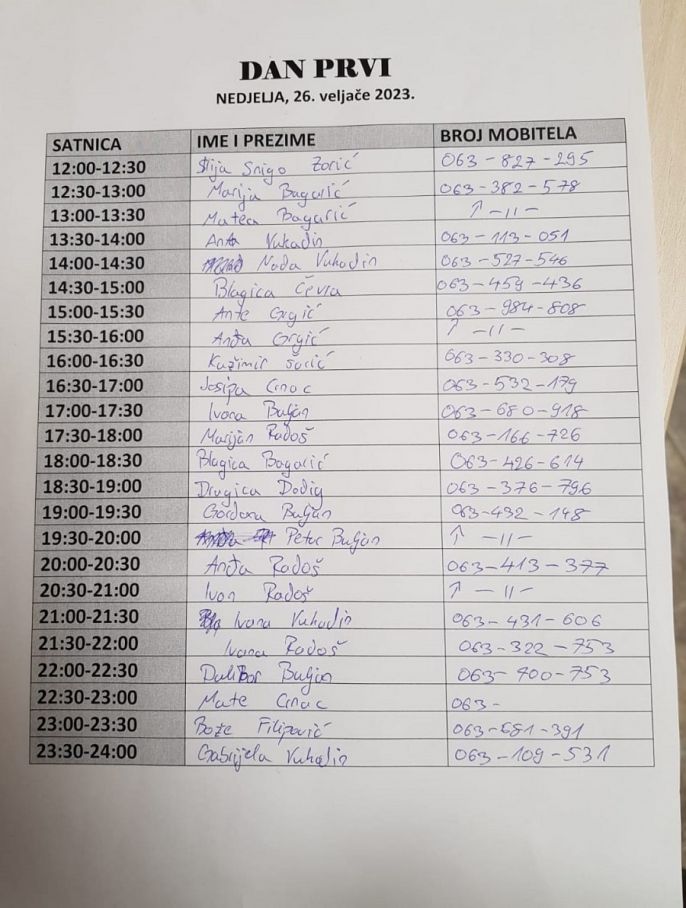 DAN PRVI
NEDJELJA, 26. veljače 2023.
SATNICA IME I PREZIME BROJ MOBITELA
12:00-12:30 Ilija Snigo Zorić 063-827-295
12:30-13:00 Marija Bagarić 063-382-578
13:00-13:30 Matea Bagarić ↑ -11-
13:30-14:00 Anta Vukadin 063-113-051
14:00-14:30 Nada Vukadin 063-527-546
14:30-15:00 Blagica Čevra 063-459-436
15:00-15:30 Ante Grgić 063-984-808
15:30-16:00 Anđa Grgić ↑ -11-
16:00-16:30 Kažimir 063-330-308
16:30-17:00 Josipa Crnac 063-532-179
17:00-17:30 Ivana Buljan 063-680-918
17:30-18:00 Marijan Radoš 063-166-726
18:00-18:30 Blagica Bagarić 063-426-614
18:30-19:00 Dragica Dodig 063-376-796
19:00-19:30 Gordana Buljan 063-432-148
19:30-20:00 Petar Buljan ↑ -11-
20:00-20:30 Anđa Radoš 063-413-377
20:30-21:00 Ivan Radoš ↑ -11-
21:00-21:30 Ivana Vukadin 063-431-606
21:30-22:00 Ivana Radoš 063-322-753
22:00-22:30 Dalibor Buljan 063-400-753
22:30-23:00 Mate Crnac 063-
23:00-23:30 Bože Filipović 063-681-391
23:30-24:00 Gabrijela Vukadin 063-109-531